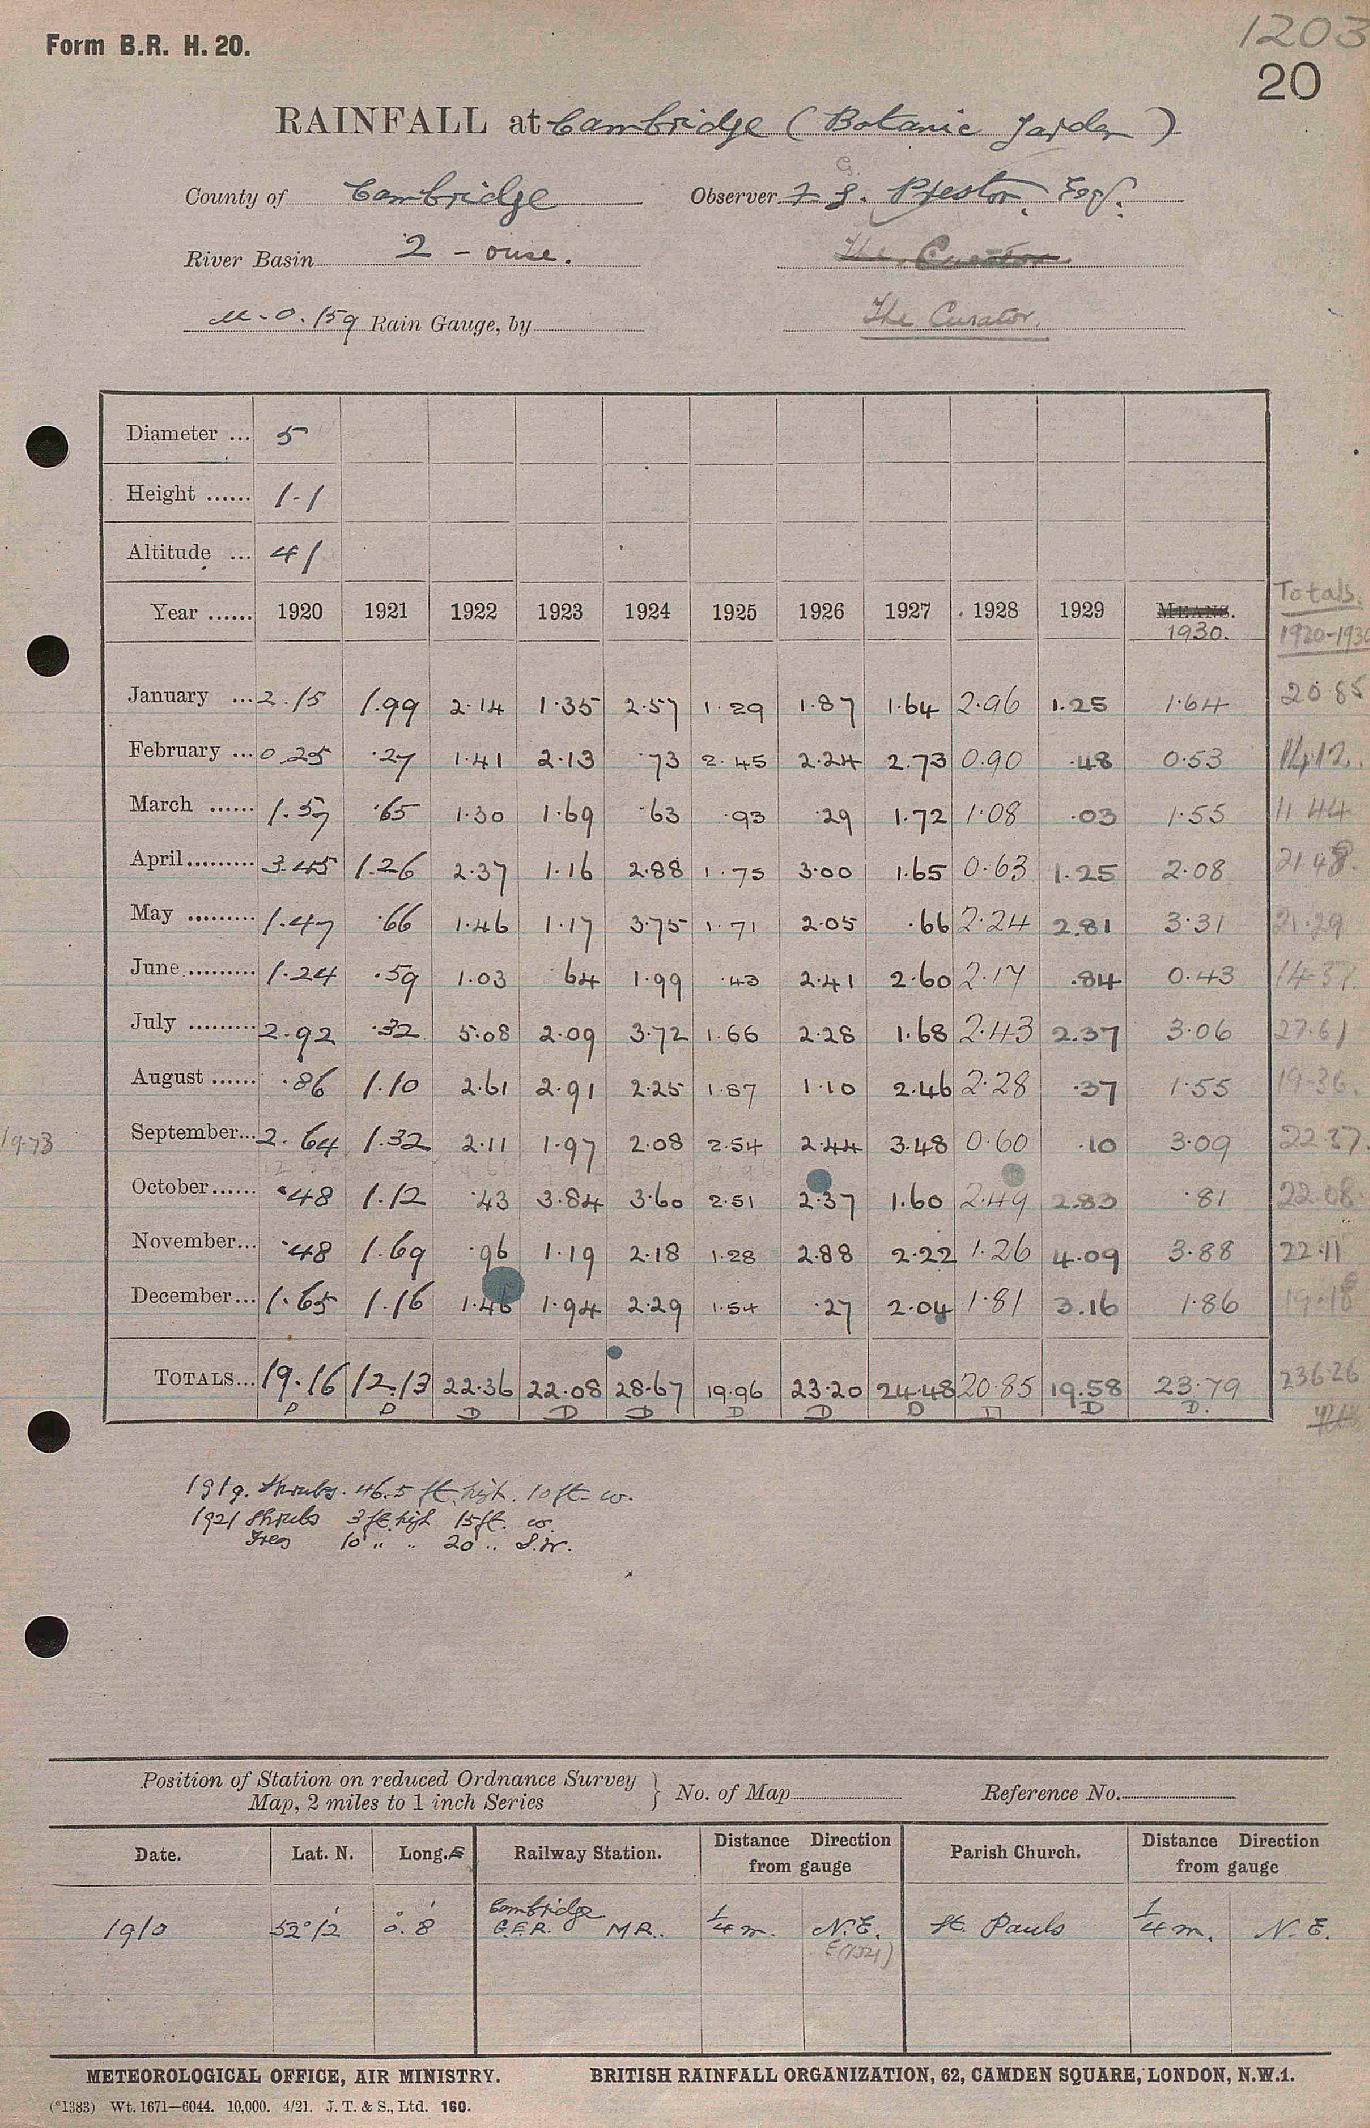 1203
Form B.R. H. 20.
20
RAINFALL at Cambridge (Botanic Garden)
County of Cambridge Observer F G. Preston. Esq.
River Basin 2 - ouse. The Curator
M.O. 159 Rain Gauge, by The Curator.
Diameter ... 5
Height ...... 1-1
Altitude ... 41
Totals.
Year ...... 1920 1921 1922 1923 1924 1925 1926 1927 1928 1929 MEANS. 1930. 1920-1930
January ... 2.15 1.99 2.14 1.35 2.57 1.29 1.87 1.64 2.96 1.25 1.64 20.85
February ... 0.25 .27 1.41 2.13 .73 2.45 2.24 2.73 0.90 .48 0.53 14.12
March ...... 1.57 .65 1.30 1.69 .63 .93 .29 1.72 1.08 .03 1.55 11.44
April ......... 3.45 1.26 2.37 1.16 2.88 1.75 3.00 1.65 0.63 1.25 2.08 21.48
May ......... 1.47 .66 1.46 1.17 3.75 1.71 2.05 .66 2.24 2.81 3.31 21.29
June ......... 1.24 .59 1.03 .64 1.99 .43 2.41 2.60 2.17 .84 0.43 14.37
July ......... 2.92 .32 5.08 2.09 3.72 1.66 2.28 1.68 2.43 2.37 3.06 27.61
August ...... .86 1.10 2.61 2.91 2.25 1.87 1.10 2.46 2.28 .37 1.55 19.36
19.73 September... 2.64 1.32 2.11 1.97 2.08 2.54 2.44 3.48 0.60 .10 3.09 22.37
October ...... .48 1.12 .43 3.84 3.60 2.51 2.37 1.60 2.49 2.83 .81 22.08
November... .48 1.69 .96 1.19 2.18 1.28 2.88 2.22 1.26 4.09 3.88 22.11
December... 1.65 1.16 1.46 1.94 2.29 1.54 .27 2.04 1.81 3.16 1.86 19.18
TOTALS... 19.16 12.13 22.36 22.08 28.67 19.96 23.20 24.48 20.85 19.58 23.79 236.26
D D D D D D D D D D D.
1919. Shrubs. 46.5 ft. high. 10 ft. W.
1921 Shrubs 3 ft. high 15 ft. W.
Trees 10 " " 20 " S.W.
Position of Station on reduced Ordnance Survey
Map, 2 miles to 1 inch Series } No. of Map Reference No.
Date. Lat. N. Long. E Railway Station. Distance Direction from gauge Parish Church. Distance Direction from gauge
1910 52° 12' 0° 8' Cambridge G.E.R. M.R. 1/4 m. N.E. St. Pauls 1/4 m. N.E.
E (1921)
METEOROLOGICAL OFFICE, AIR MINISTRY. BRITISH RAINFALL ORGANIZATION, 62, CAMDEN SQUARE, LONDON, N.W.1.
(*1383) Wt. 1671—6044. 10,000. 4/21. J. T. & S., Ltd. 160.